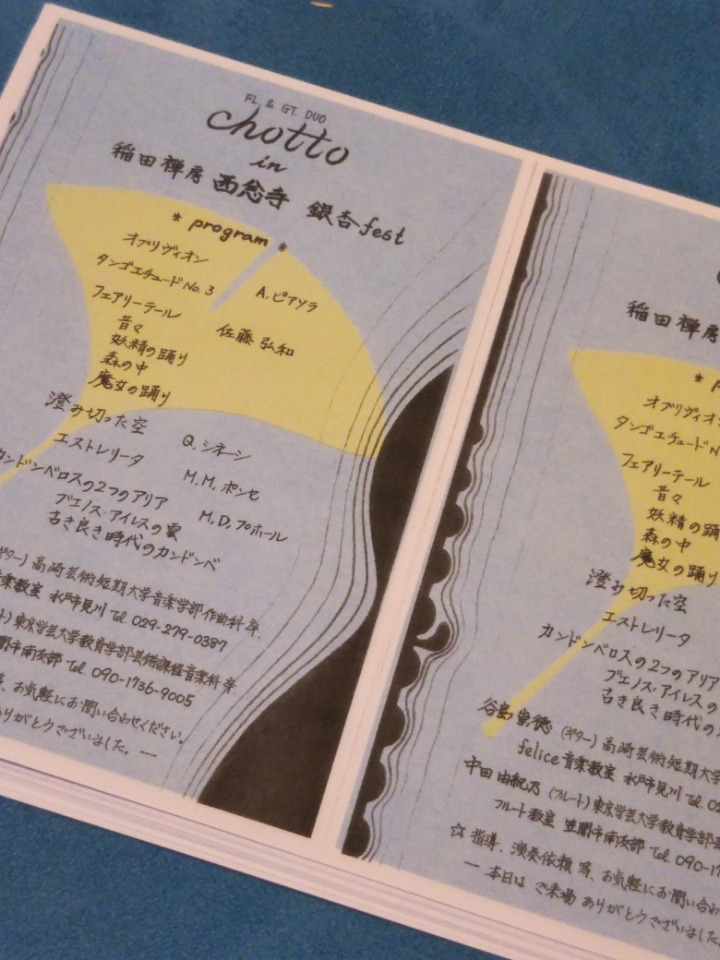 FL. & GT. DUO
chotto
in
稲田禅房 西念寺 銀杏fest
* program *
オブリヴィオン
タンゴエチュードNo.3 A.ピアソラ
フェアリーテール 佐藤弘和
昔々
妖精の踊り
森の中
魔女の踊り
澄み切った空 Q.シネーシ
エストレリータ M.M.ポンセ
カンドンベロスの2つのアリア M.D.プホール
ブエノス・アイレスの雲
古き良き時代のカンドンベ
(ギター) 高崎芸術短期大学音楽学部作曲科卒.
音楽教室 水戸市見川 Tel 029-279-0387
ト) 東京学芸大学教育学部芸術課程音楽科卒
間市南友部 Tel. 090-1736-9005
等、お気軽にお問い合わせください。
ありがとうございました。―
稲田禅房
オブリヴィオ
タンゴエチュードN
フェアリーテール
昔々
妖精の踊
森の中
魔女の踊り
澄み切った空
エストレリータ
カンドンベロスの2つのアリア
ブエノス・アイレスの
古き良き時代の
谷島 (ギター) 高崎芸術短期大学
felice音楽教室 水戸市見川 Tel 0
中田由紀乃 (フルート) 東京学芸大学教育学部
フルート教室 笠間市南友部 Tel. 090-17
☆ 指導、演奏依頼 等、お気軽にお問い合わ
― 本日は ご来場 ありがとうございました